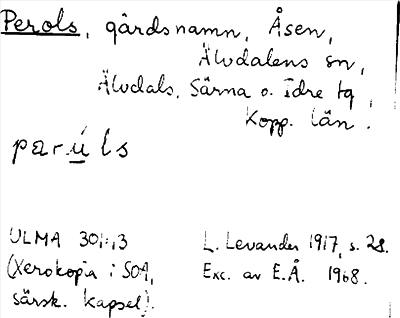 Perols, gårdsnamn, Åsen,
Älvdalens sn,
Älvdals, Särna o. Idre tg,
Kopp. län.
parúls
ULMA 301:13
(Xerokopia i SOA,
särsk. kapsel).
L. Levander 1917, s. 28.
Exc. av E.Å. 1968.